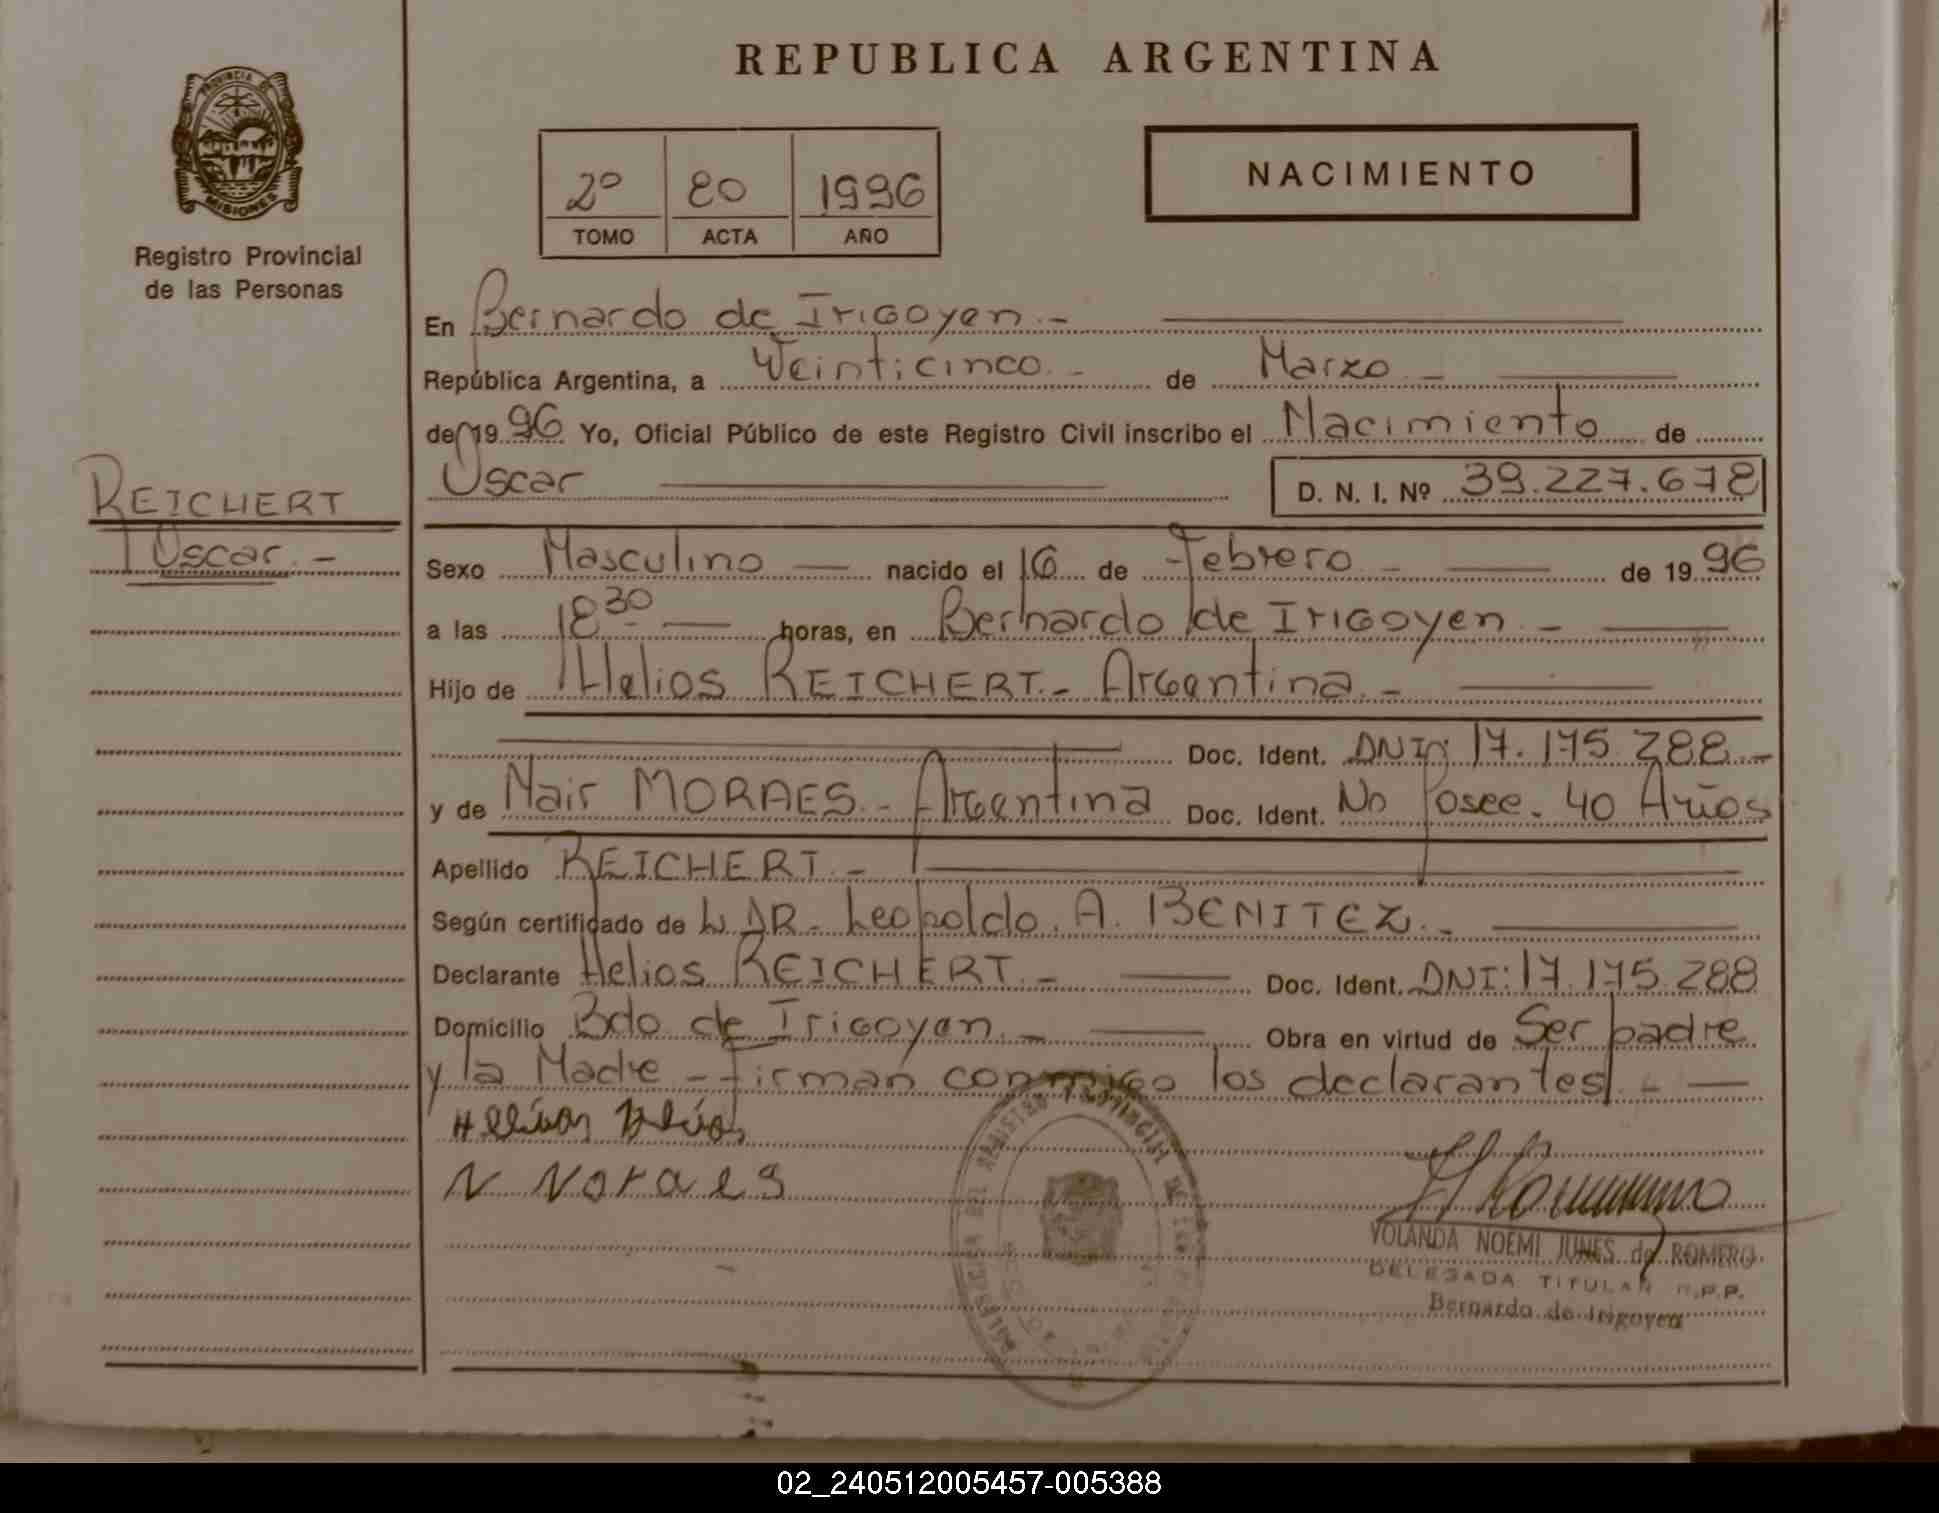 REPUBLICA ARGENTINA
PROVINCIA DE
MISIONES
Registro Provincial
de las Personas
2º 80 1996
TOMO ACTA AÑO
NACIMIENTO
En Bernardo de Irigoyen.-
República Argentina, a Veinticinco.- de Marzo.-
de 1996 Yo, Oficial Público de este Registro Civil inscribo el Nacimiento de
Oscar D. N. I. Nº 39.227.678
REICHERT
Oscar.-
Sexo Masculino nacido el 16 de Febrero.- de 1996
a las 18 30 horas, en Bernardo de Irigoyen.-
Hijo de Helios REICHERT.- Argentina.-
Doc. Ident. DNI: 17.175.288.-
y de Nair MORAES.- Argentina Doc. Ident. No Posee. 40 Años
Apellido REICHERT.-
Según certificado de DR. Leopoldo. A. BENITEZ.-
Declarante Helios REICHERT.- Doc. Ident. DNI: 17.175.288
Domicilio Bdo de Irigoyen.- Obra en virtud de Ser padre
y la Madre - Firman conmigo los declarantes.-
N Noraes
REGISTRO PROVINCIAL DE
YOLANDA NOEMI JUNES de ROMERO
DELEGADA TITULAR R.P.P.
Bernardo de Irigoyen
02_240512005457-005388